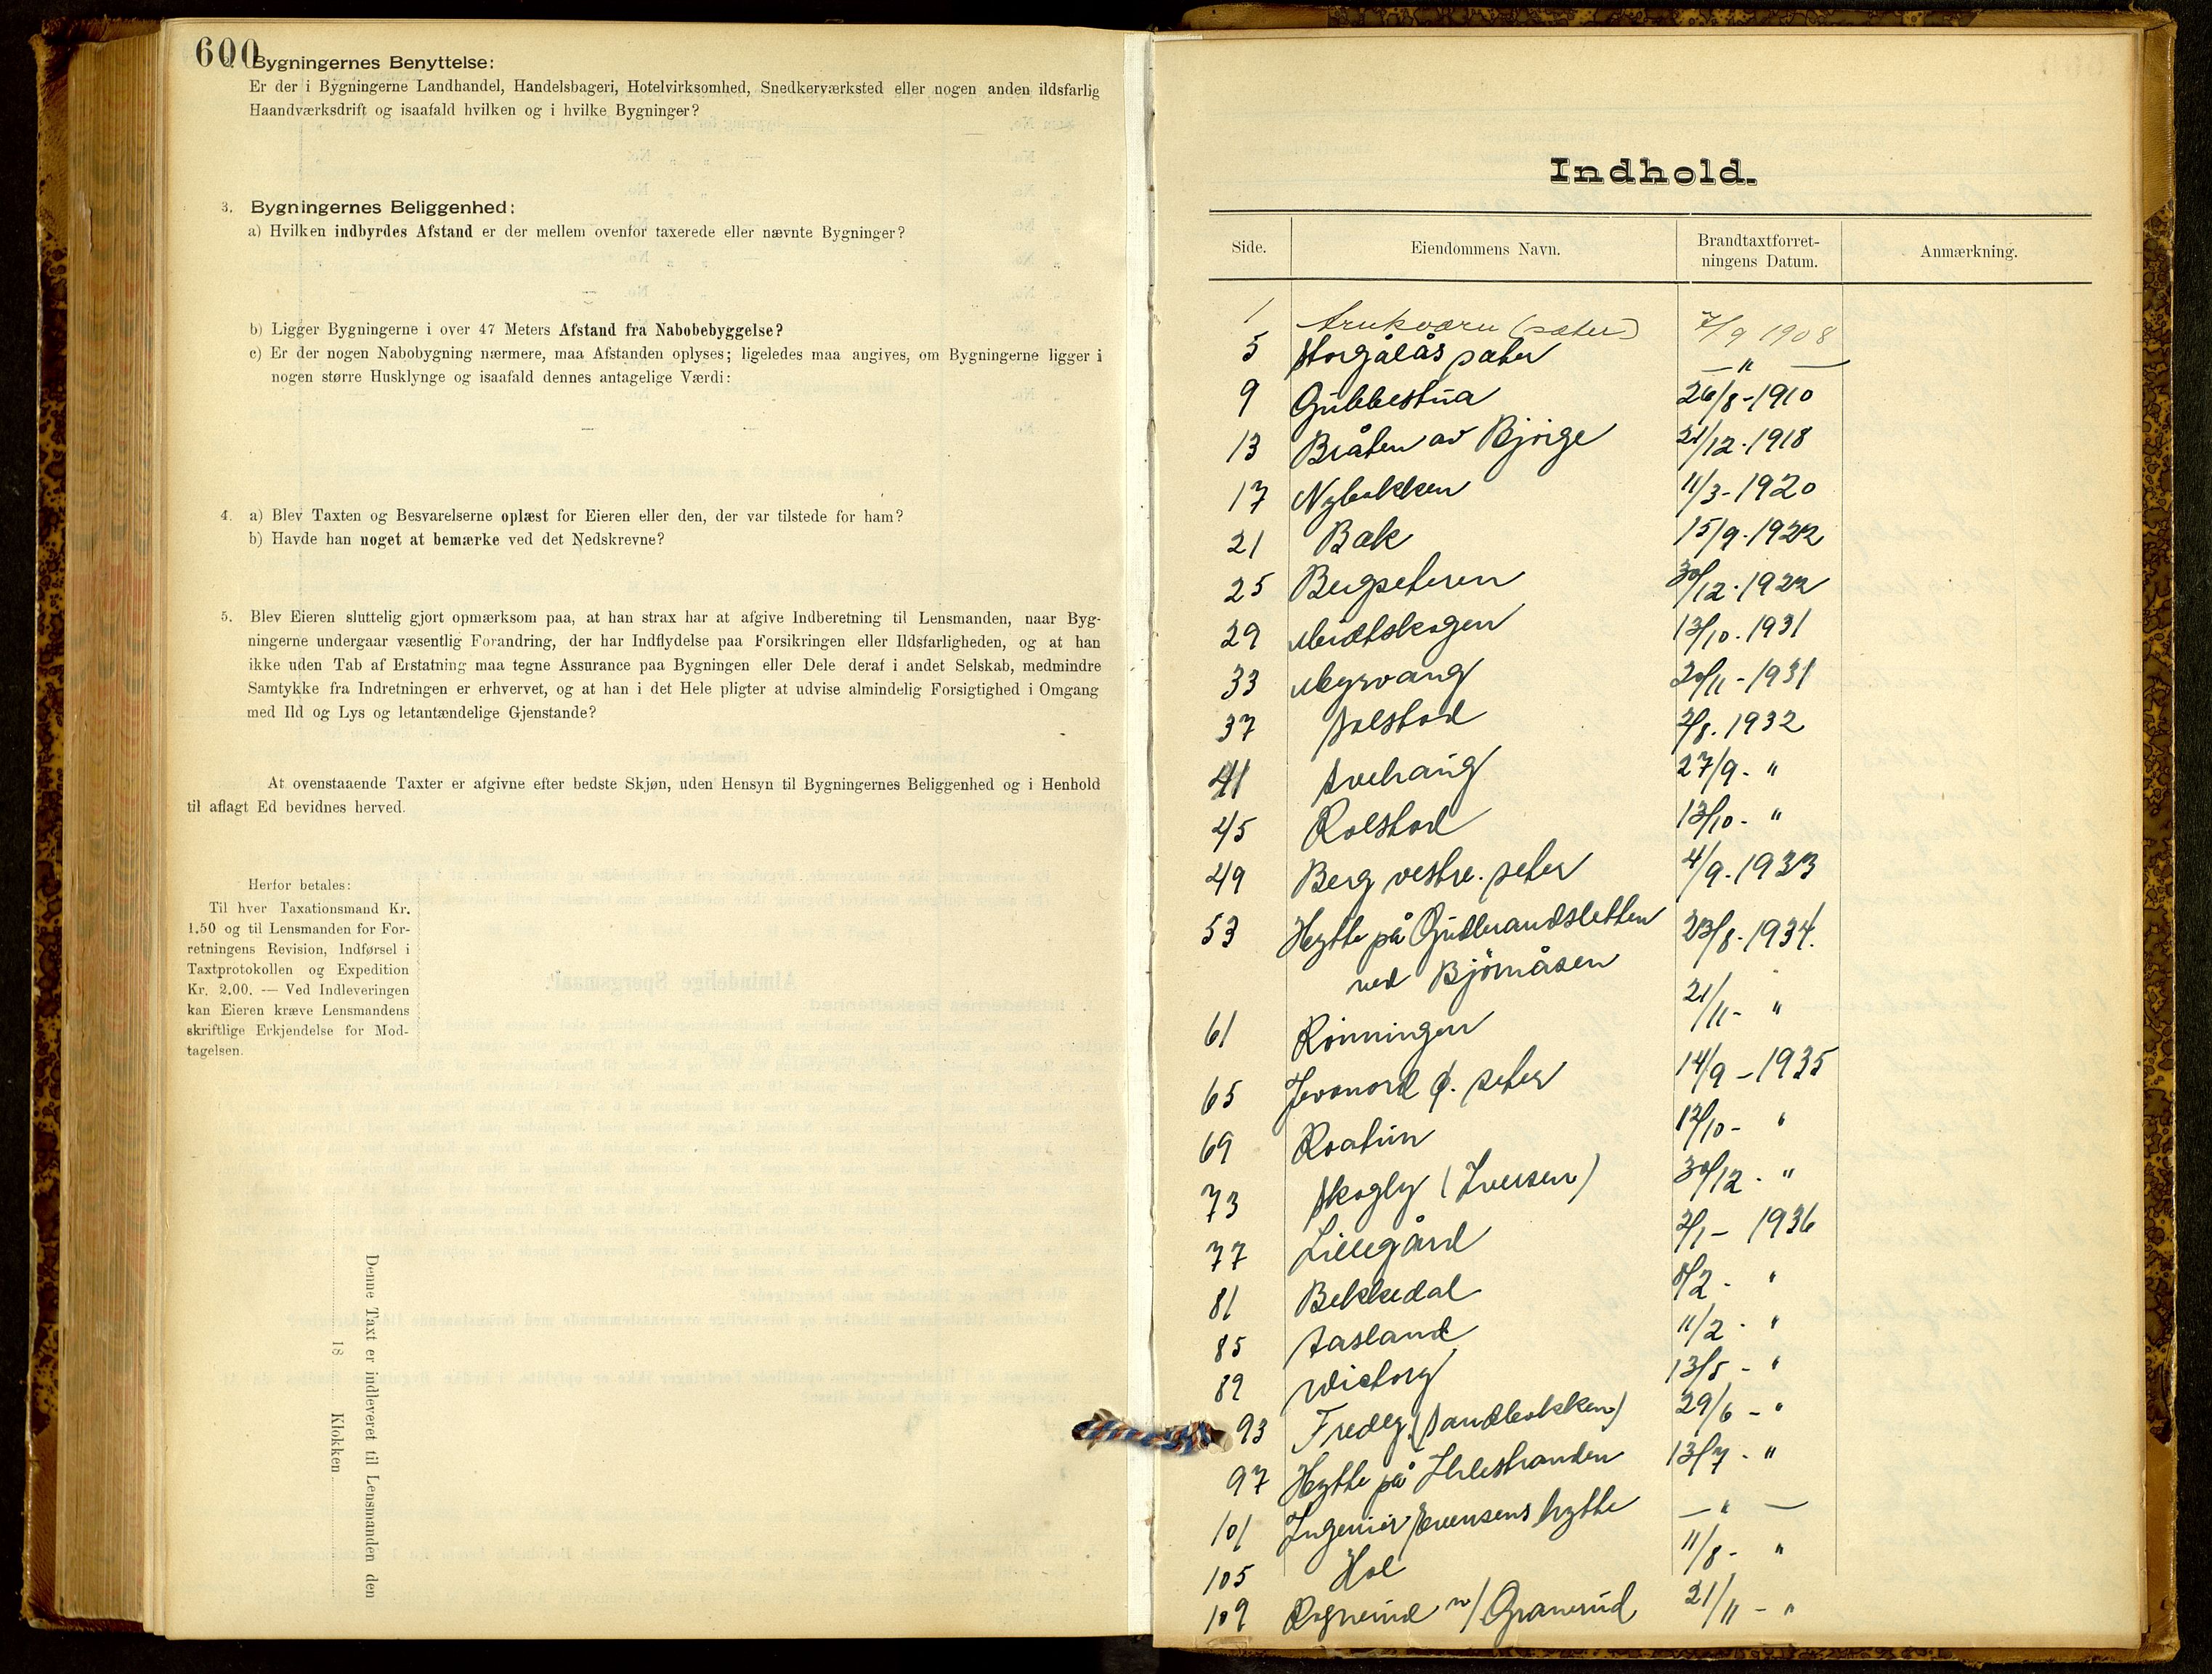 600
2. Bygningernes Benyttelse:
Er der i Bygningerne Landhandel, Handelsbageri, Hotelvirksomhed, Snedkerværksted eller nogen anden ildsfarlig
Haandværksdrift og isaafald hvilken og i hvilke Bygninger?
3. Bygningernes Beliggenhed:
a) Hvilken indbyrdes Afstand er der mellem ovenfor taxerede eller nævnte Bygninger?
b) Ligger Bygningerne i over 47 Meters Afstand fra Nabobebyggelse?
c) Er der nogen Nabobygning nærmere, maa Afstanden oplyses; ligeledes maa angives, om Bygningerne ligger i
nogen større Husklynge og isaafald dennes antagelige Værdi:
4. a) Blev Taxten og Besvarelserne oplæst for Eieren eller den, der var tilstede for ham?
b) Havde han noget at bemærke ved det Nedskrevne?
5. Blev Eieren sluttelig gjort opmærksom paa, at han strax har at afgive Indberetning til Lensmanden, naar Byg-
ningerne undergaar væsentlig Forandring, der har Indflydelse paa Forsikringen eller Ildsfarligheden, og at han
ikke uden Tab af Erstatning maa tegne Assurance paa Bygningen eller Dele deraf i andet Selskab, medmindre
Samtykke fra Indretningen er erhvervet, og at han i det Hele pligter at udvise almindelig Forsigtighed i Omgang
med Ild og Lys og letantændelige Gjenstande?
At ovenstaaende Taxter er afgivne efter bedste Skjøn, uden Hensyn til Bygningernes Beliggenhed og i Henhold
til aflagt Ed bevidnes herved.
Herfor betales:
Til hver Taxationsmand Kr.
1.50 og til Lensmanden for For-
retningens Revision, Indførsel i
Taxtprotokollen og Expedition
Kr. 2.00. — Ved Indleveringen
kan Eieren kræve Lensmandens
skriftlige Erkjendelse for Mod-
tagelsen.
Denne Taxt er indleveret til Lensmanden den
18 Klokken
Indhold.
Side. Eiendommens Navn. Brandtaxtforret-
ningens Datum. Anmærkning.
1 (sæter) 7/9 1908
5 Storgålås sæter — " —
9 Gubbestua 26/8-1910
13 Bråten av Bjørge 21/12.1918
17 Nybakken 11/3-1920
21 Bak 15/9.1922
25 Bergseteren 30/12.1922
29 Midtskogen 13/10.1931
33 Myrvang 20/11-1931
37 Solstad 2/8.1932
41 Svehaug 27/9- "
45 Rolstad 13/10- "
49 Berg vestre. seter 4/9.1933
53 Hytte på Gudbrandsletten 23/8.1934.
ved Björnåsen
61 Rönningen 21/11- "
65 Jevanord ø. seter 14/9-1935
69 Roatun 12/10- "
73 Skogly (Iversen) 30/12. "
77 Lillegård 2/1- 1936
81 Bekkedal 8/2- "
85 Aasland 11/2- "
89 Wiborg 13/5- "
93 Fredly (Sandbakken) 29/6- "
97 Hytte på 13/7. "
101 Ingeniør hytte — " —
105 Hol 11/8- "
109 Rognerud m/ Granerud 21/11- "